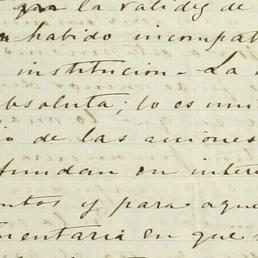 la validez de
habido incompat
institucion - La
bsoluta; lo es mu
o de las acciones
fundan en inter
ntos y para aque
mentaria en que